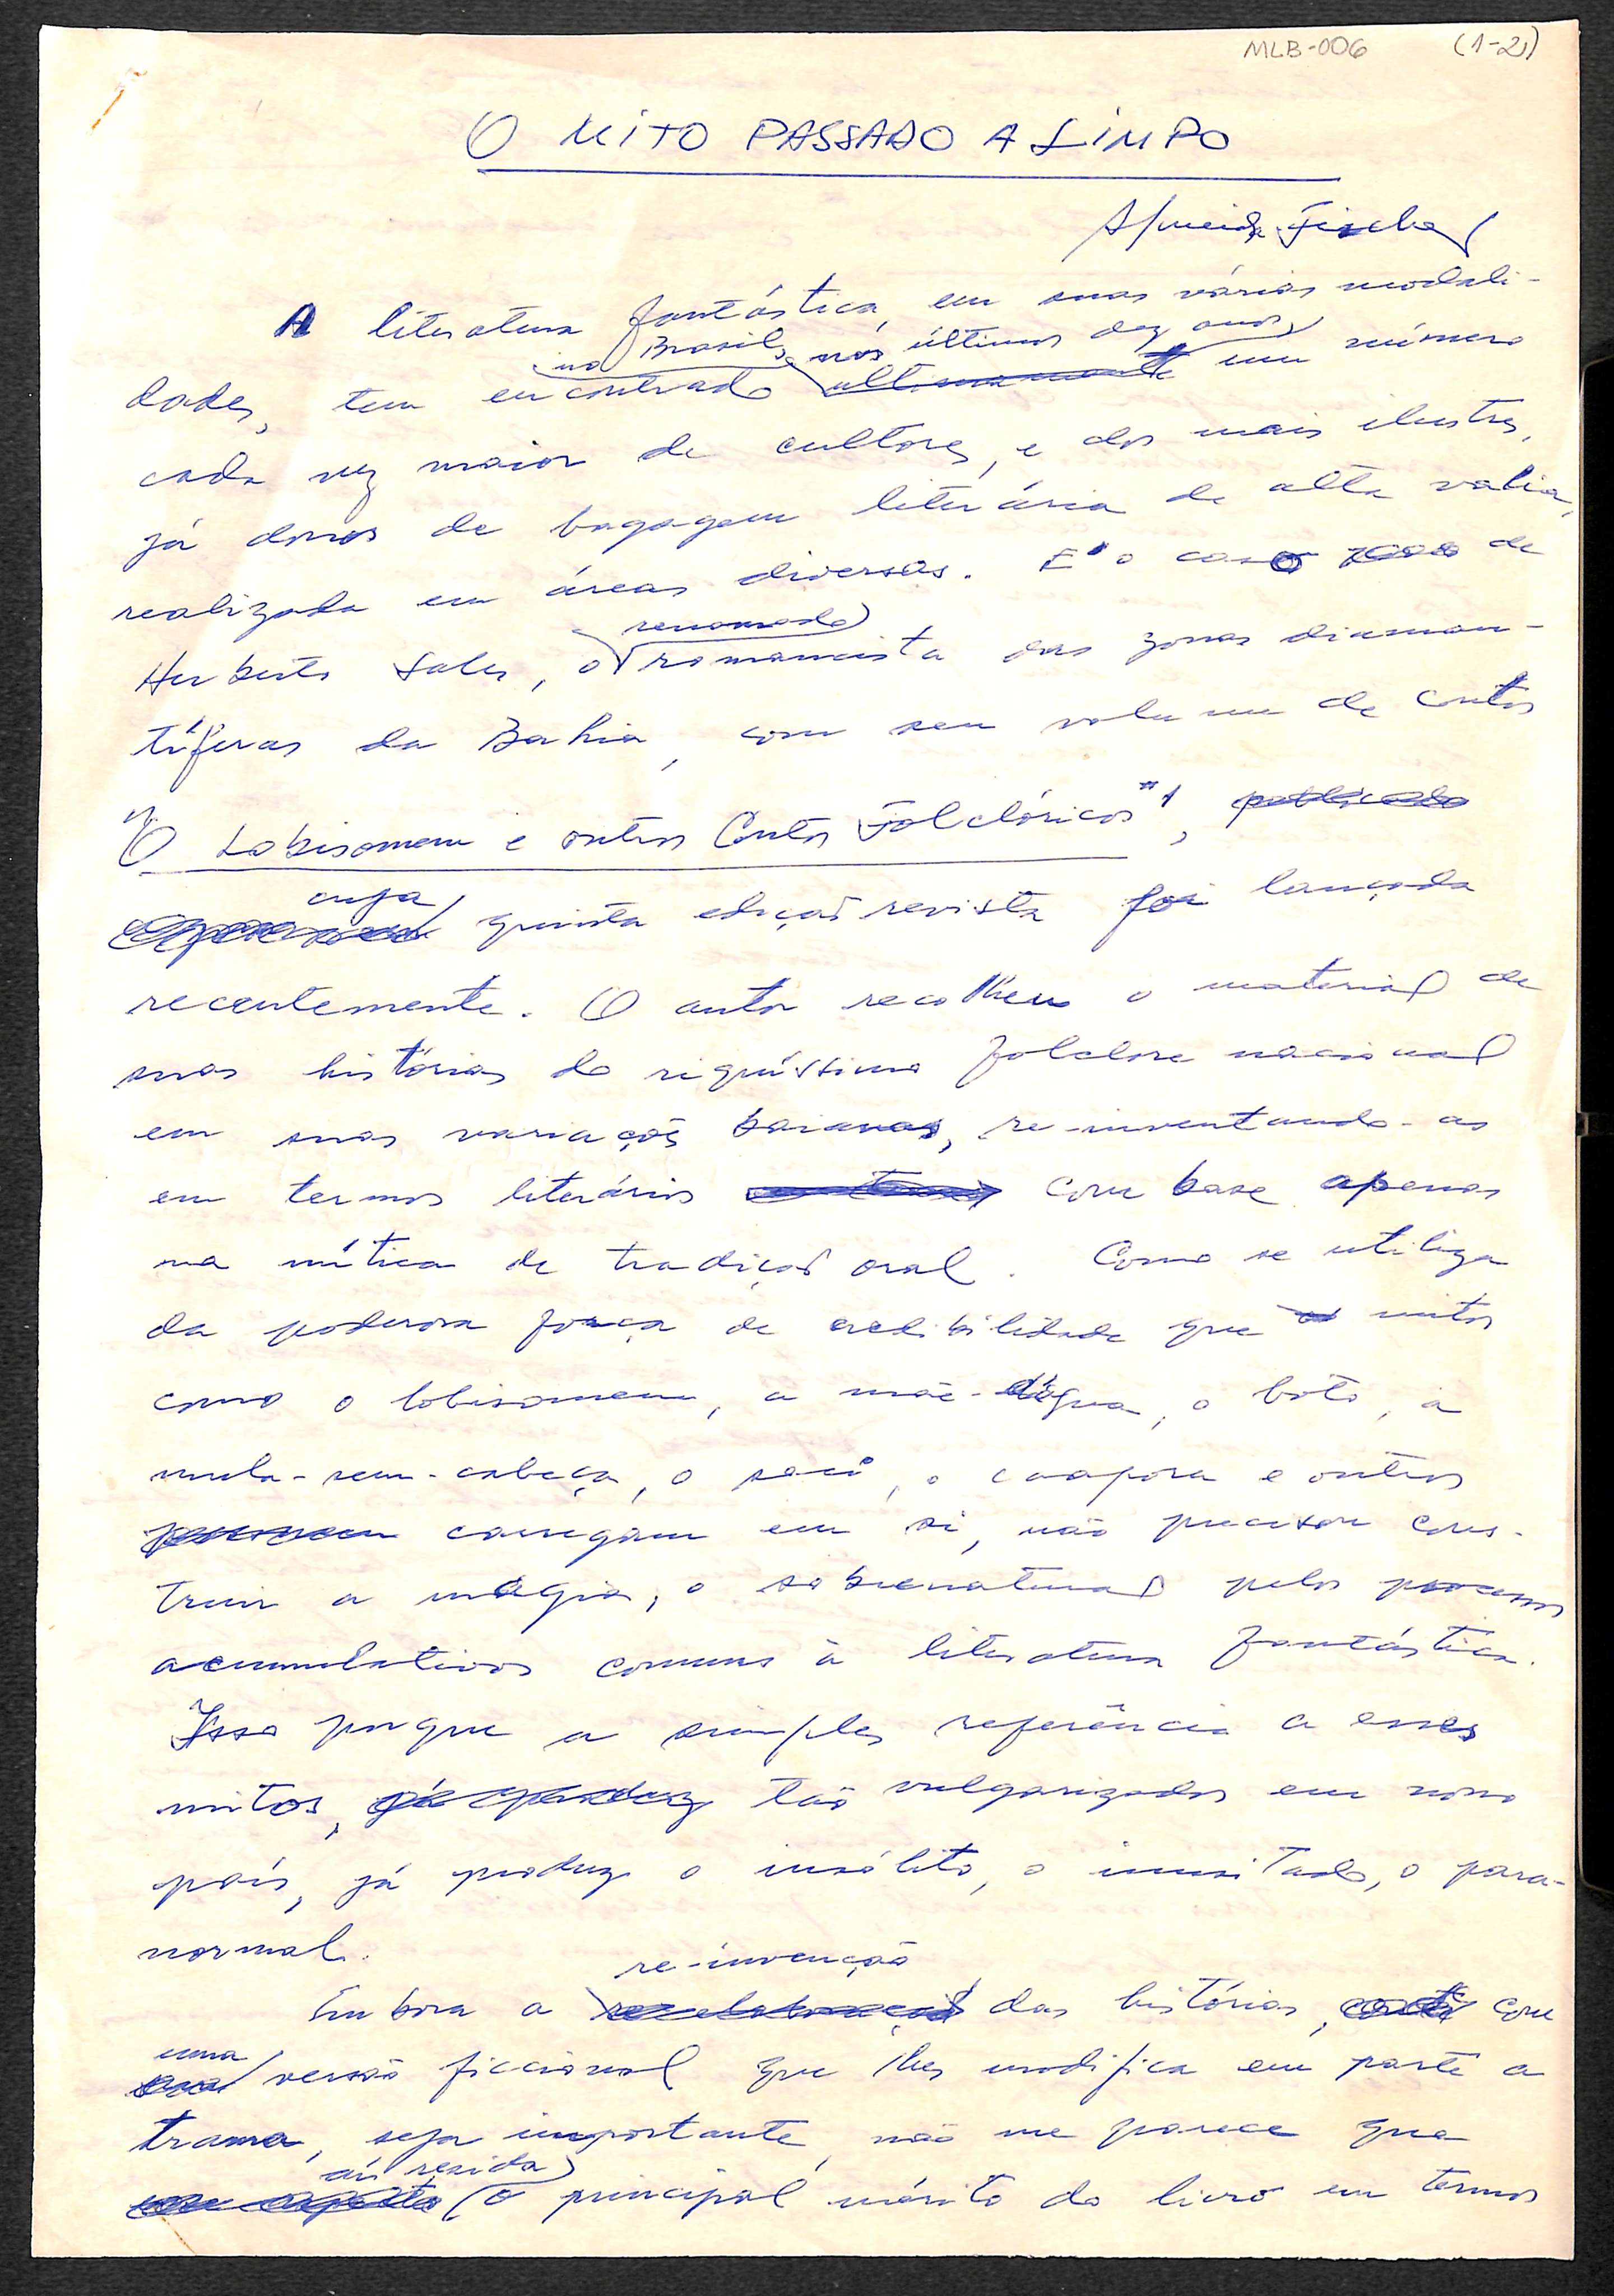 MLB-006 (1-2)
O MITO PASSADO A LIMPO
Almeida Fischer
A literatura fantástica, em suas várias modali-
no Brasil, nos últimos dez anos
dades, tem encontrado ultimamente um número
cada vez maior de cultores, e dos mais ilustres,
já donos de bagagem literária de alta valia,
realizada em áreas diversas. E' o caso de
renomado
Herberto Sales, o romancista das zonas diaman-
tíferas da Bahia, com seu volume de contos
"O Lobisomem e outros Contos Folclóricos"1, publicado
cuja
quinta edição revista foi lançada
recentemente. O autor recolheu o material de
suas histórias do riquíssimo folclore nacional
em suas variações baianas, re-inventando-as
em termos literários com base apenas
na mítica de tradição oral. Como se utiliza
da poderosa força de credibilidade que mitos
como o lobisomem, a mãe-d'água, o boto, a
mula-sem-cabeça, o saci, o caapora e outros
carregam em si, não precisou cons-
truir a magia, o sobrenatural pelos processos
acumulativos comuns à literatura fantástica.
Isso porque a simples referência a esses
mitos, já produz tão vulgarizados em nosso
país, já produz o insólito, o inusitado, o para-
normal.
re-invenção
Embora a reelaboração das histórias, com
uma
sua versão ficcional que lhes modifica em parte a
trama, seja importante, não me parece que
aí resida
esse aspecto o principal mérito do livro em termos